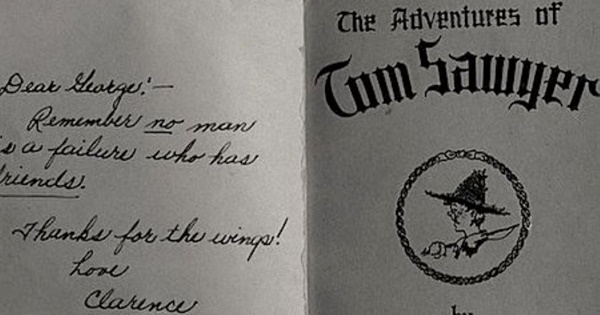 Dear George:—
Remember no man
is a failure who has
friends.
Thanks for the wings!
Love
Clarence
The Adventures of
Tom Sawyer
by